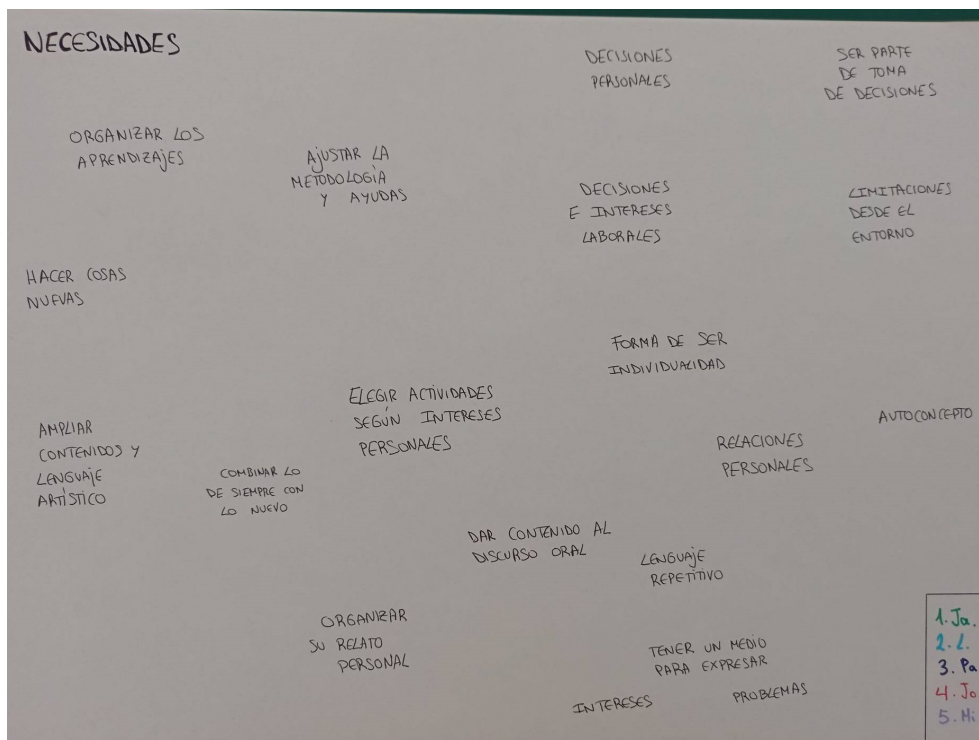 NECESIDADES
DECISIONES
PERSONALES
SER PARTE
DE TOMA
DE DECISIONES
ORGANIZAR LOS
APRENDIZAJES
AJUSTAR LA
METODOLOGÍA
Y AYUDAS
DECISIONES
E INTERESES
LABORALES
LIMITACIONES
DESDE EL
ENTORNO
HACER COSAS
NUEVAS
FORMA DE SER
INDIVIDUALIDAD
ELEGIR ACTIVIDADES
SEGÚN INTERESES
PERSONALES
AMPLIAR
CONTENIDOS Y
LENGUAJE
ARTÍSTICO
COMBINAR LO
DE SIEMPRE CON
LO NUEVO
RELACIONES
PERSONALES
AUTOCONCEPTO
DAR CONTENIDO AL
DISCURSO ORAL
LENGUAJE
REPETITIVO
ORGANIZAR
SU RELATO
PERSONAL
TENER UN MEDIO
PARA EXPRESAR
INTERESES
PROBLEMAS
1. Ja.
2. L.
3. Pa
4. Jo
5. Mi